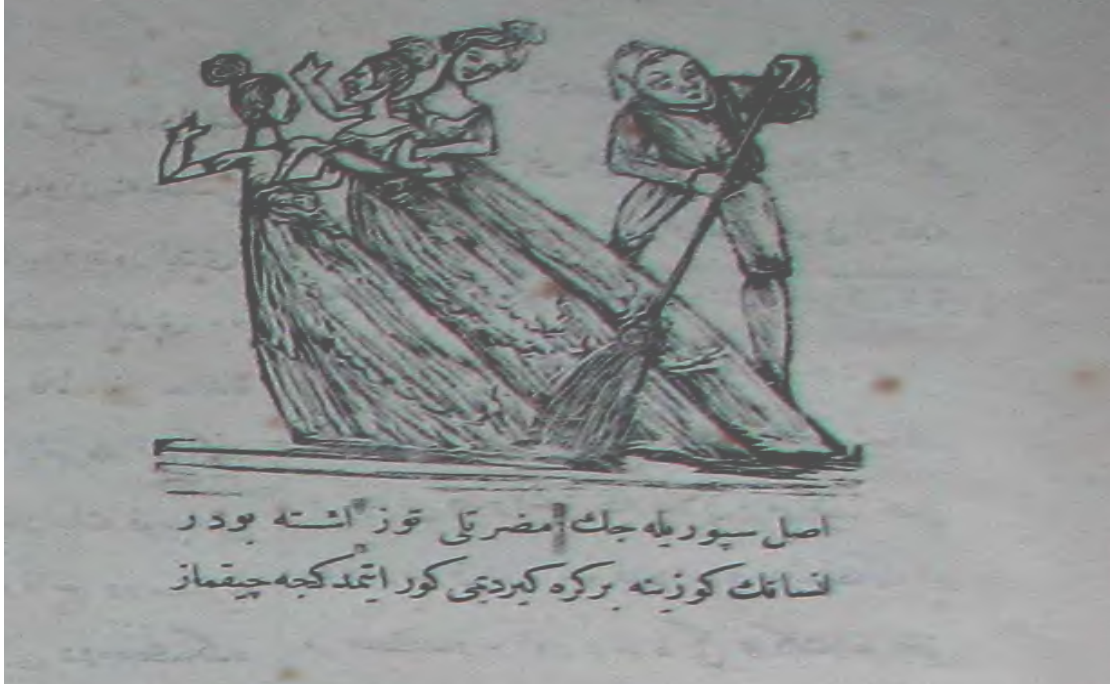 اصل سپوريله جك مضرتلى توز اشته بودر
انسانك كوزينه بركره كيرديمى كور ايتمدكجه چيقماز